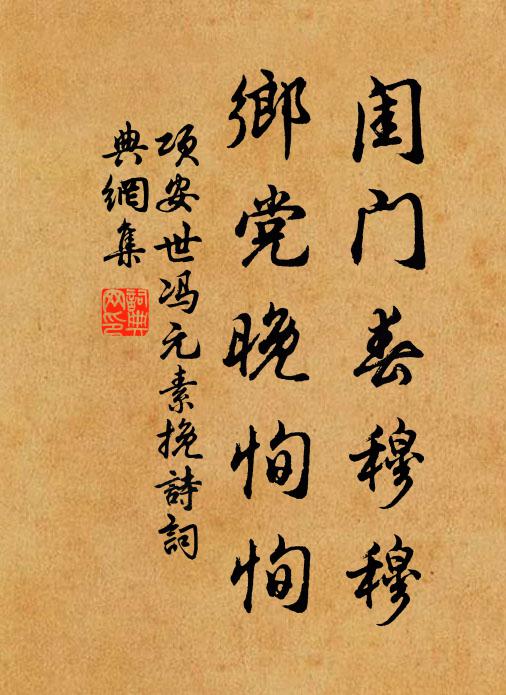 闺门春穆穆
鄉党晚恂恂
项安世冯元素挽詩詞
典網集
詞典
网印